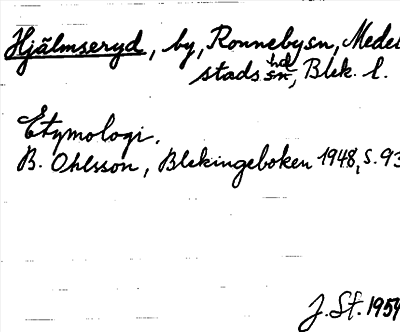 Hjälmseryd, by, Ronnebysn, Medel
stads hd, Blek. l.
Etymologi.
B. Ohlsson, Blekingeboken 1948, s. 93
J. St. 1954